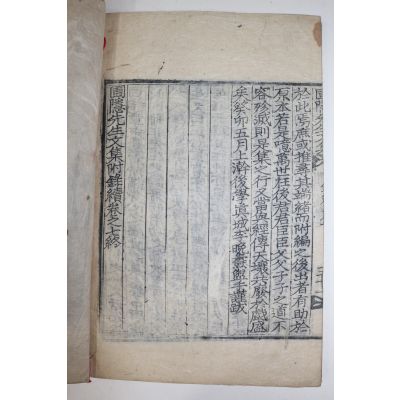 於此焉庶或推尋其端緖而附編之後出者有助於
原本若是噫萬世在後君君臣臣父父子子之道不
容殄滅則是集之行又當與經傳天壤共敝於戱盛
矣癸卯五月上澣後學眞城李晩燾熙壬謹跋
圃隱先生文集附錄續卷之七終